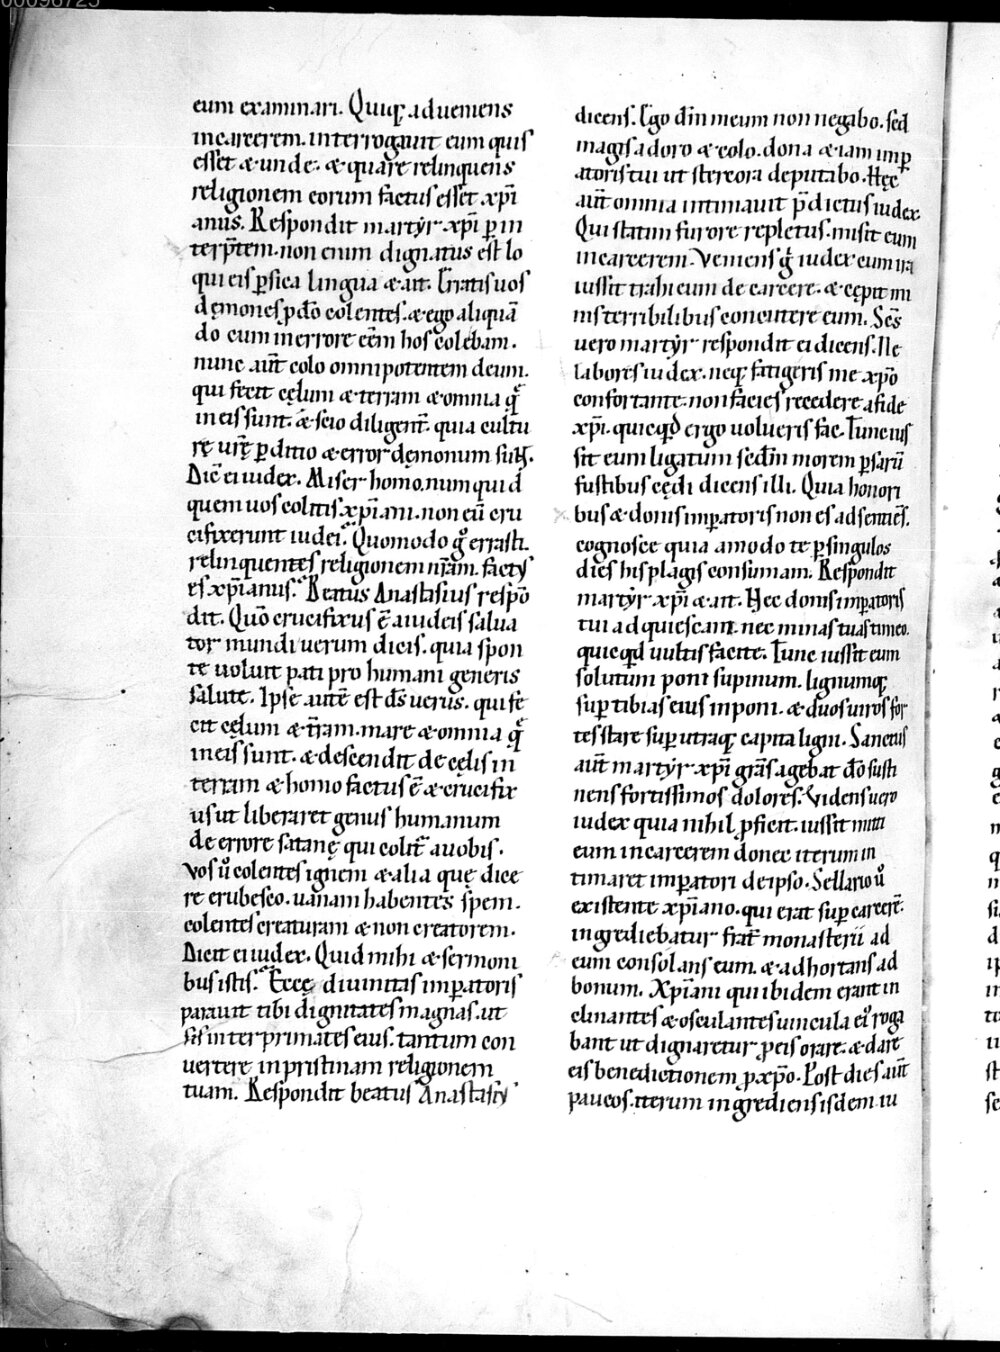 00096725
eum examinari. Quiq; adueniens
incarcerem. interrogauit eum quis
esset & unde. & quare relinquens
religionem eorum factus esset xp̄i
anus. Respondit martẏr xp̄i p̱ in
terp̄tem. non enim dignatus est lo
qui eis p̱sica lingua & ait. Erratis uos
dęmones p̱ dō colentes. & ego aliquā
do cum inerrore eēm hos colebam.
nunc aūt colo omnipotentem deum.
qui fecit cęlum & terram & omnia q̄
ineis sunt. & scio diligent̄. quia cultu
rę ur̄ę p̱ditio & error dęmonum sūt.
Dic̄ ei iudex. Miser homo. num quid
quem uos colitis xp̄iani. non eū cru
cifixerunt iudei? Quomodo gͦ errasti.
relinquentes religionem nr̄am. factꝰ
es xp̄ianus? Beatus Anastasius respō
dit. Quō crucifixus ē aiudeis salua
tor mundi uerum dicis. quia spon
te uoluit pati pro humani generis
salute. Ipse autē est d̄s uerus. qui fe
cit cęlum & t̄ram. mare & omnia q̄
ineis sunt. & descendit de cęlis in
terram & homo factus ē & crucifix
us ut liberaret genus humanum
de errore satanę qui colit̄ auobis.
vos ūͦ colentes ignem & alia quę dice
re erubesco. uanam habentes spem.
colentes creaturam & non creatorem.
Dicit ei iudex. Quid mihi & sermoni
bus istis? Ecce diuinitas imp̱atoris
parauit tibi dignitates magnas. ut
sis inter primates eius. tantum con
uertere inpristinam religionem
tuam. Respondit beatus Anastasiꝰ
dicens. Ego dn̄m meum non negabo. sed
magis adoro & colo. dona & iam imp̱
atoris tui ut stercora deputabo. Hęc
aūt omnia intimauit p̄dictus iudex.
Qui statim furore repletus. misit eum
incarcerem. Veniens gͦ iudex cum ira
iussit trahi eum de carcere. & cępit mi
nis terribilibus concutere eum. Sc̄s
uero martẏr respondit ei dicens. Ne
labores iudex. neq; fatigeris me xp̄o
confortante. non facies recedere afide
xp̄i. quicqd̄ ergo uolueris fac. Tunc ius
sit eum ligatum sedm̄ morem p̱sarū
fustibus cędi dicens illi. Quia honori
bus & donis imp̱atoris non es adsentiēs.
cognosce quia amodo te p̱singulos
dies his plagis consumam. Respondit
martẏr xp̄i & ait. Nec donis imp̱atoris
tui adquiescam. nec minas tuas timeo.
quicqd̄ uultis facite. Tunc iussit eum
solutum poni supinum. lignumq;
sup̱ tibias eius inponi. & duos uiros for
tes stare sup̱ utraq; capita ligni. Sanctus
aūt martẏr xp̄i grās agebat dō susti
nens fortissimos dolores. Videns uero
iudex quia nihil p̱ficit. iussit mitti
eum incarcerem donec iterum in
timaret imp̱atori de ipso. Sellario ūͦ
existente xp̄iano. qui erat sup̱ carcerē.
ingrediebatur frat̄ monasterii ad
eum consolans eum. & adhortans ad
bonum. Xp̄iani qui ibidem erant in
clinantes & osculantes uincula eiꝰ roga
bant ut dignaretur p̱ eis orare. & dare
eis benedictionem p̱ xp̄o. Post dies aūt
paucos. iterum ingrediens isdem iu